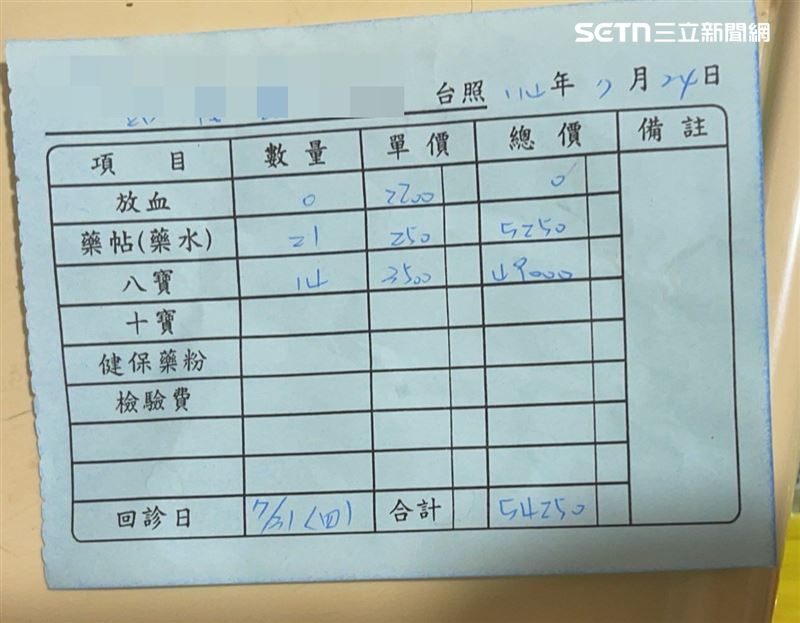 SETN三立新聞網
台照 114年 7月24日
項目 數量 單價 總價 備註
放血 0 2200 0
藥帖(藥水) 21 250 5250
八寶 14 3500 49000
十寶
健保藥粉
檢驗費
回診日 7/31(四) 合計 54250